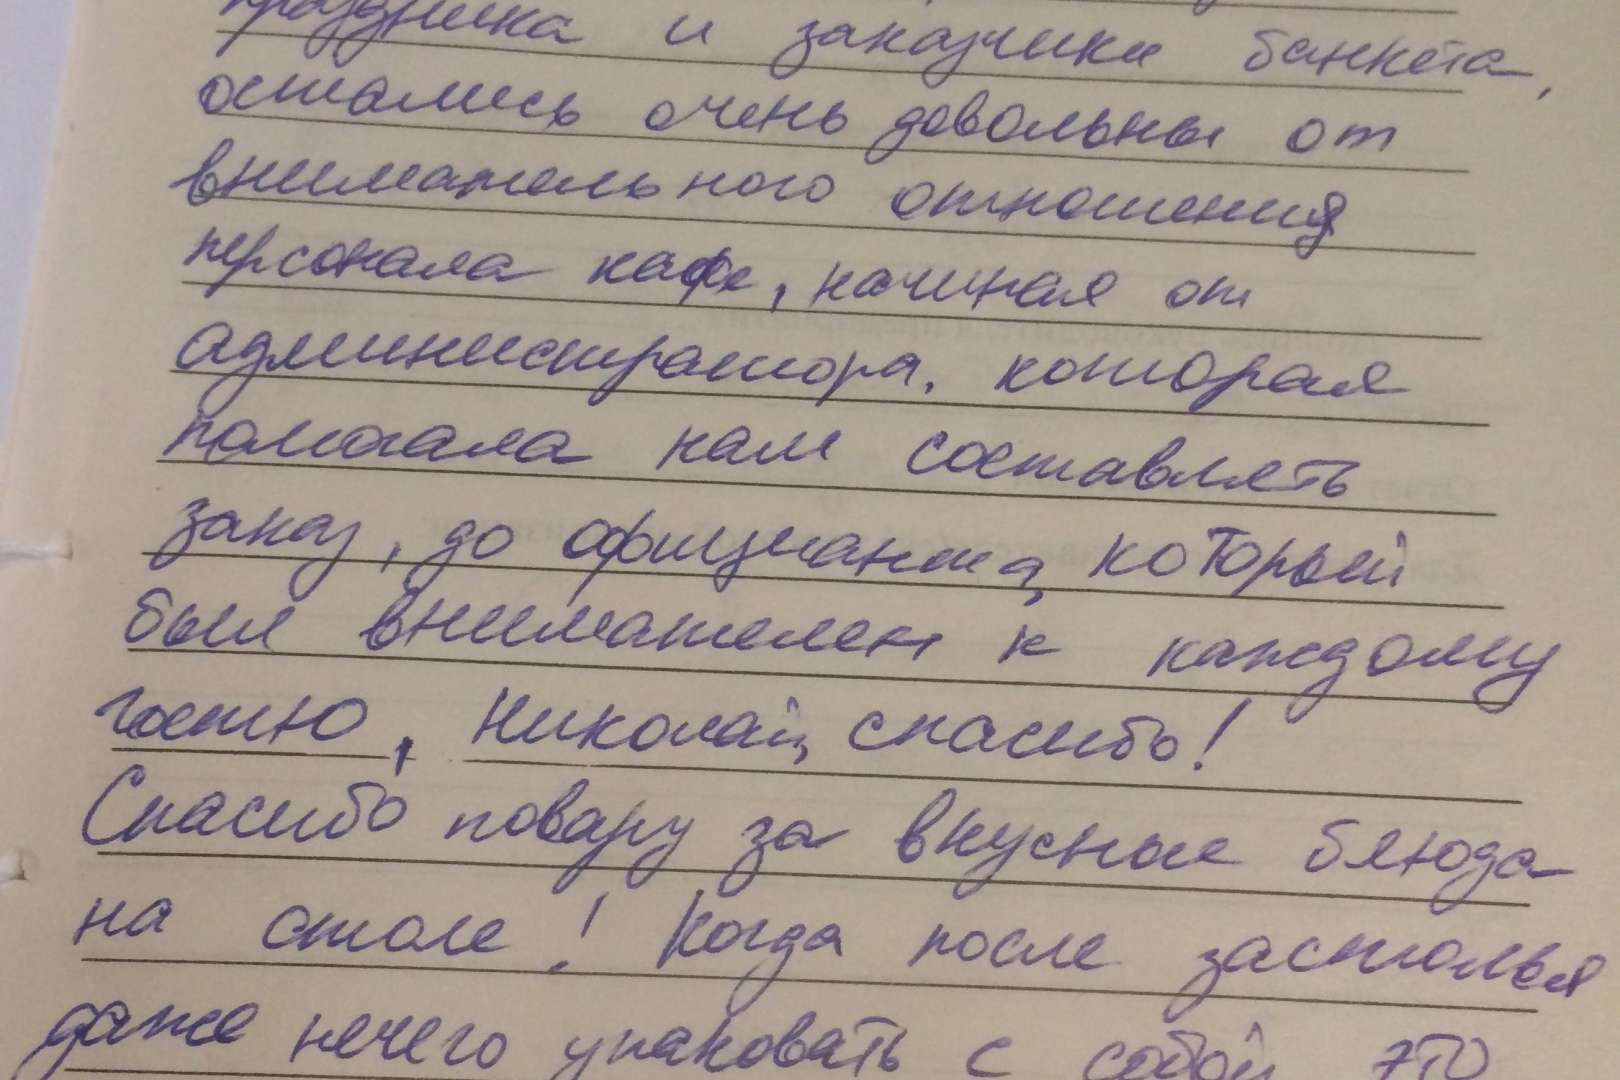 праздника и заказчики банкета,
остались очень довольны от
внимательного отношения
персонала кафе, начиная от
администратора, которая
помогала нам составлять
заказ, до официанта, который
был внимателен к каждому
гостю, Николай, спасибо!
Спасибо повару за вкусные блюда
на столе! Когда после застолья
даже нечего упаковать с собой это